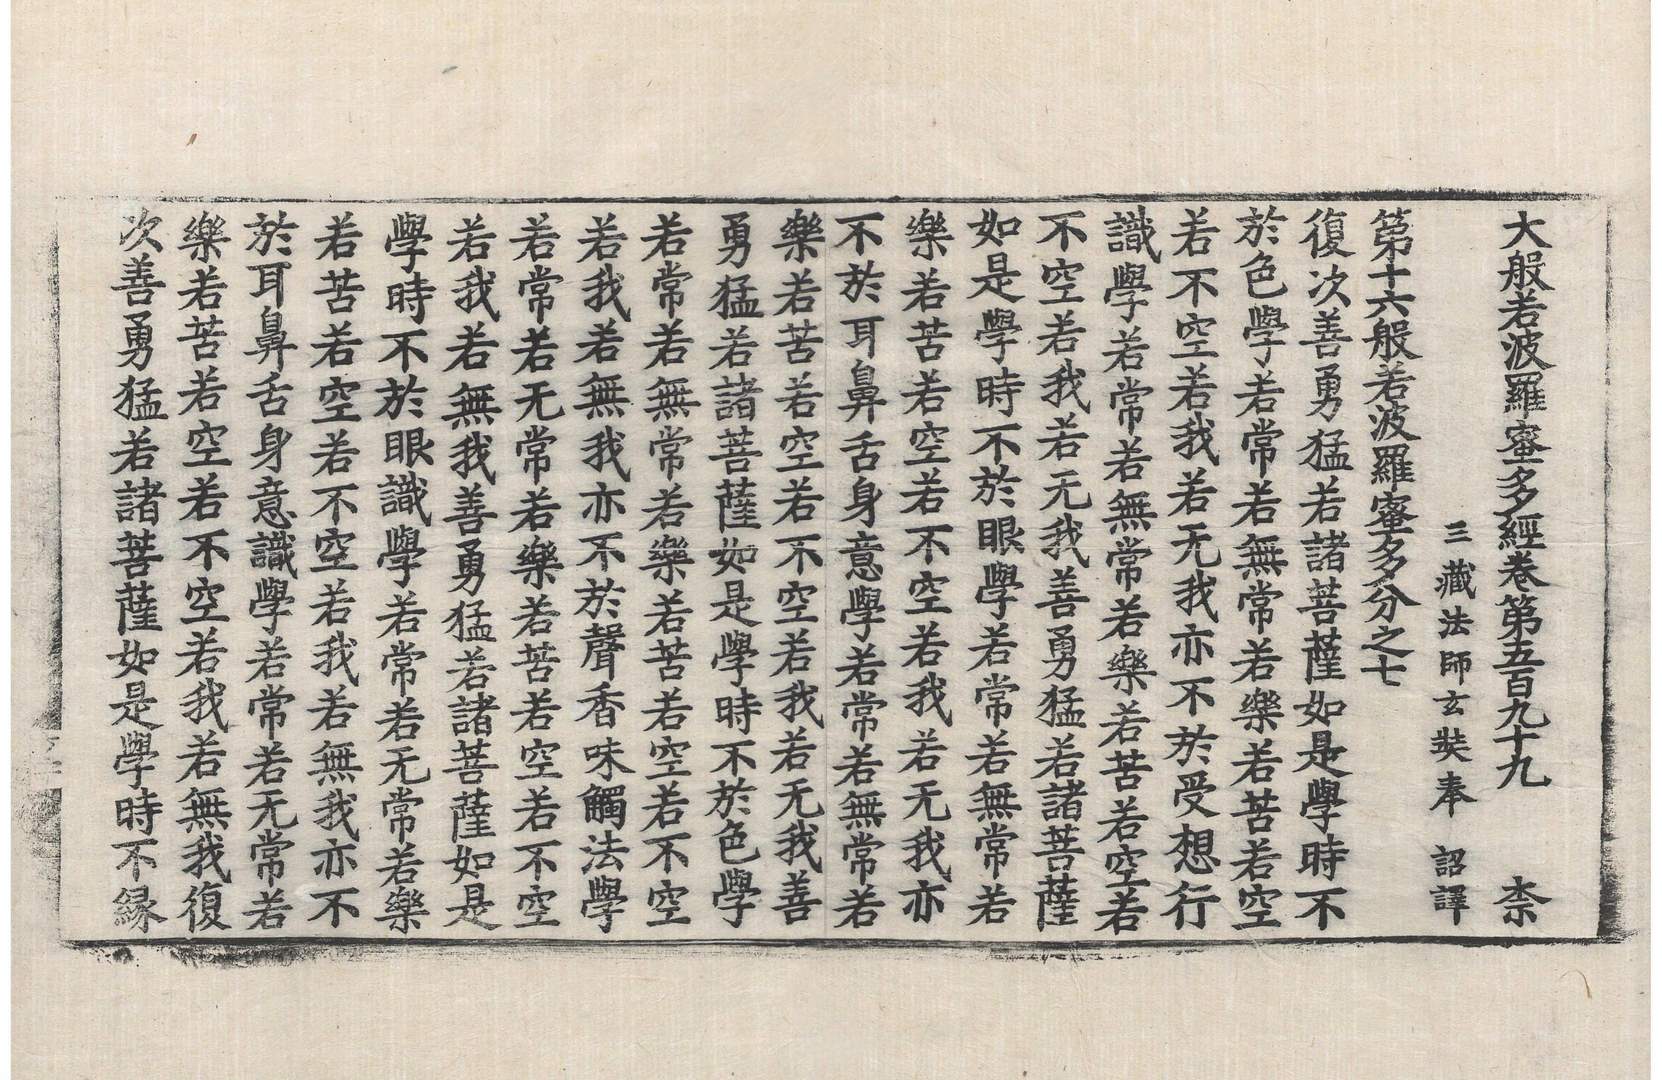 大般若波羅蜜多經卷第五百九十九 柰
三藏法師玄奘奉 詔譯
第十六般若波羅蜜多分之七
復次善勇猛若諸菩薩如是學時不
於色學若常若無常若樂若苦若空
若不空若我若无我亦不於受想行
識學若常若無常若樂若苦若空若
不空若我若无我善勇猛若諸菩薩
如是學時不於眼學若常若無常若
樂若苦若空若不空若我若无我亦
不於耳鼻舌身意學若常若無常若
樂若苦若空若不空若我若无我善
勇猛若諸菩薩如是學時不於色學
若常若無常若樂若苦若空若不空
若我若無我亦不於聲香味觸法學
若常若无常若樂若苦若空若不空
若我若無我善勇猛若諸菩薩如是
學時不於眼識學若常若无常若樂
若苦若空若不空若我若無我亦不
於耳鼻舌身意識學若常若无常若
樂若苦若空若不空若我若無我復
次善勇猛若諸菩薩如是學時不縁